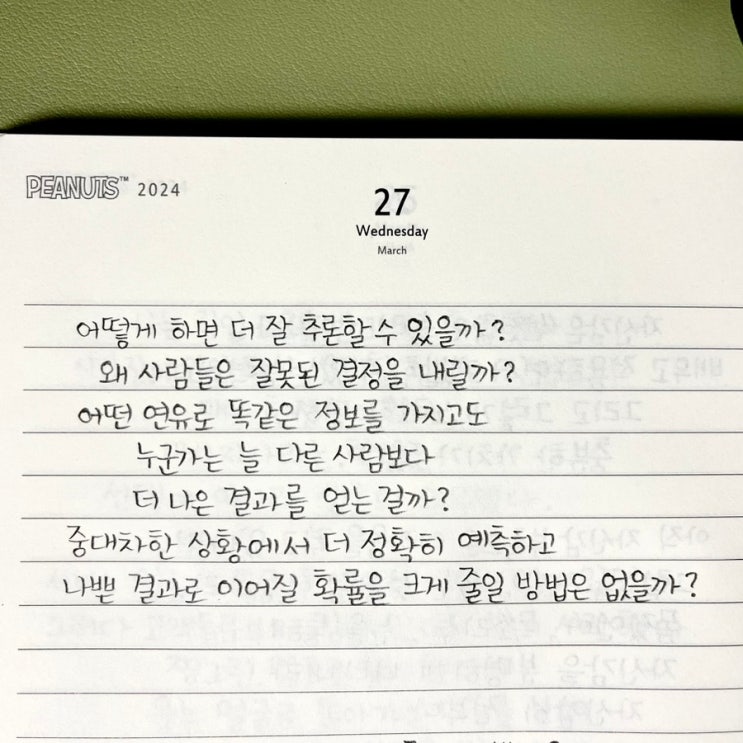 PEANUTS™ 2024
27
Wednesday
March
어떻게 하면 더 잘 추론할 수 있을까?
왜 사람들은 잘못된 결정을 내릴까?
어떤 연유로 똑같은 정보를 가지고도
누군가는 늘 다른 사람보다
더 나은 결과를 얻는 걸까?
중대차한 상황에서 더 정확히 예측하고
나쁜 결과로 이어질 확률을 크게 줄일 방법은 없을까?